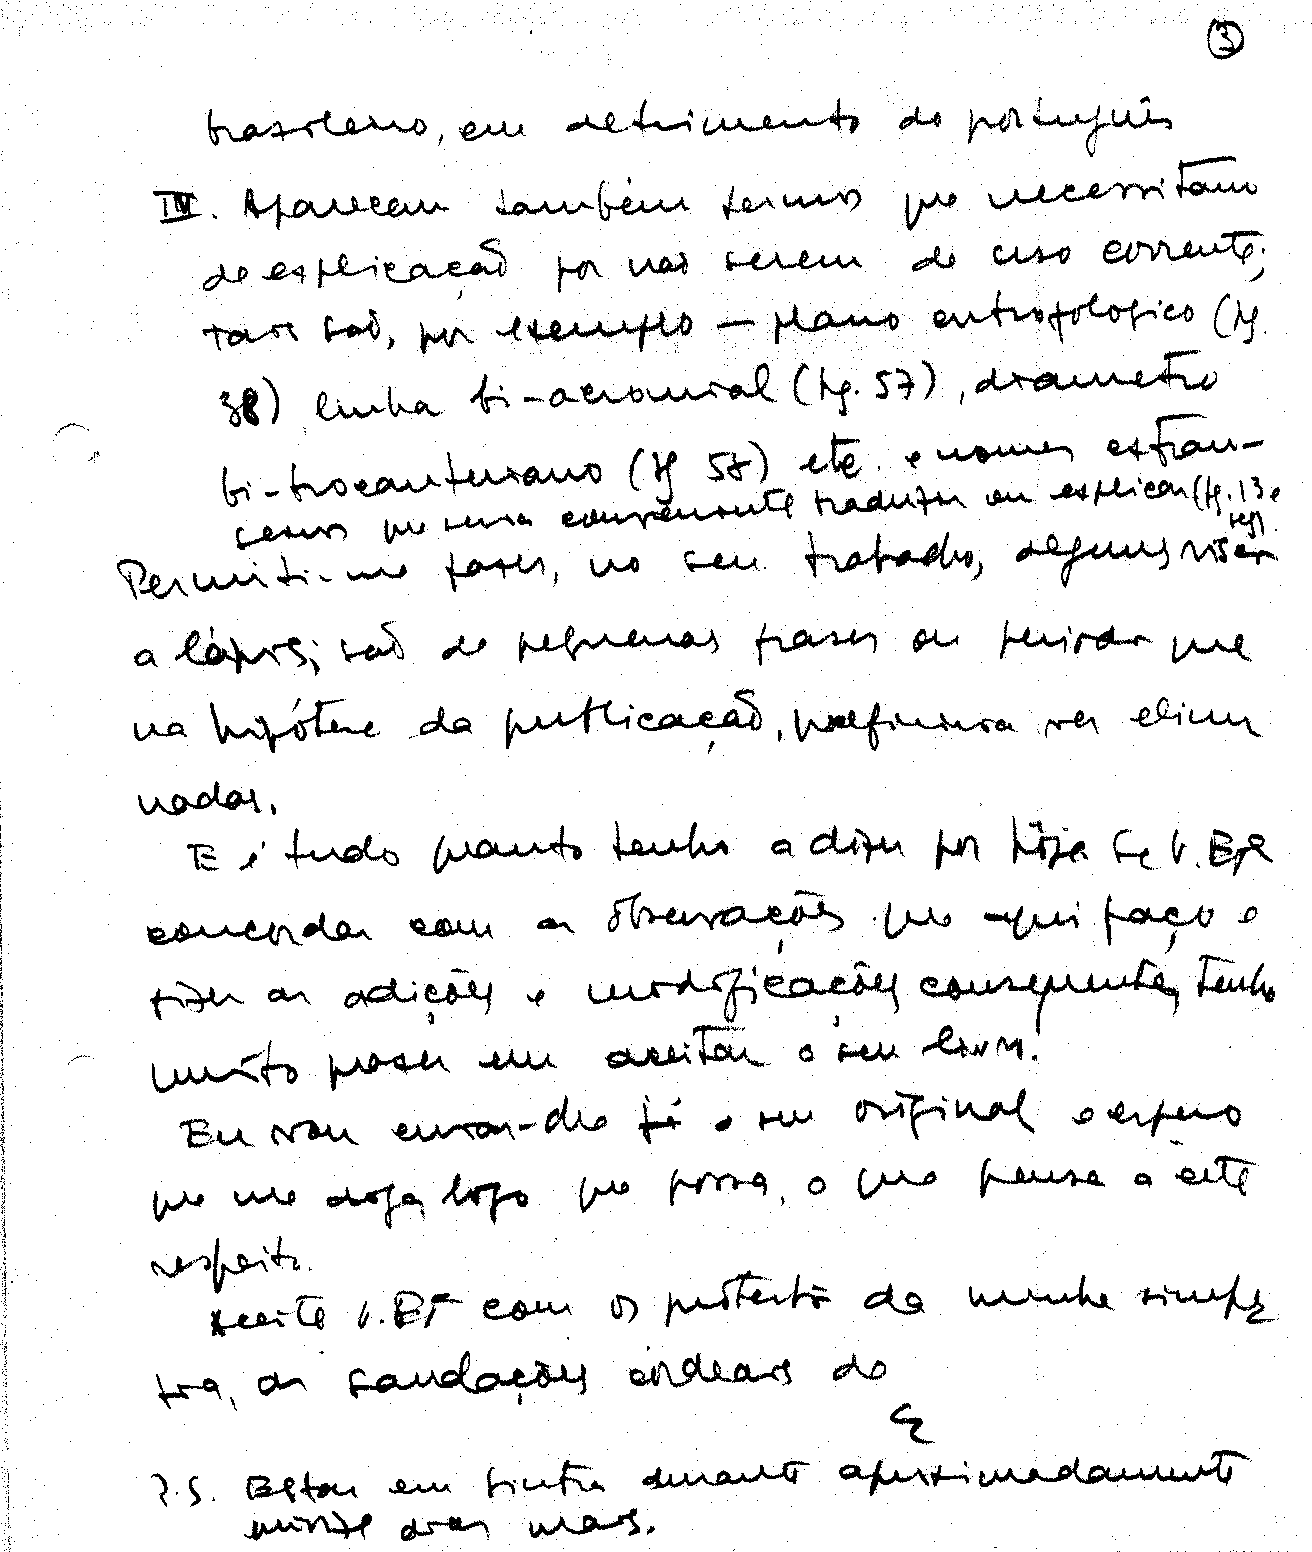 ③
brasileiro, em detrimento do português
IV. Aparecem também termos que necessitam
de explicação por não serem de uso corrente;
tais são, por exemplo — plano antropologico (pg.
38) linha bi-acromial (pg. 57), diametro
bi-trocanteriano (pg 58) etc. e nomes estran-
geiros que seria conveniente traduzir ou explicar (pg. 13 e
seg).
Permiti-me fazer, no seu trabalho, alguns riscos
a lápis; são de pequenas frases ou periodos que
na hipótese da publicação, preferiria ver elimi
nados.
E é tudo quanto tenho a dizer por hoje. Se V. Exª
concordar com as observações que aqui faço e
fizer as adições e modificações consequentes, tenho
muito prazer em aceitar o seu livro.
Eu vou enviar-lhe já o seu original e espero
que me diga, logo que possa, o que pensa a êste
respeito.
Aceite V. Exª com os protestos da minha simpa
tia, as saudações cordeais do
P.S. Estou em Sintra durante aproximadamente
dias mais.